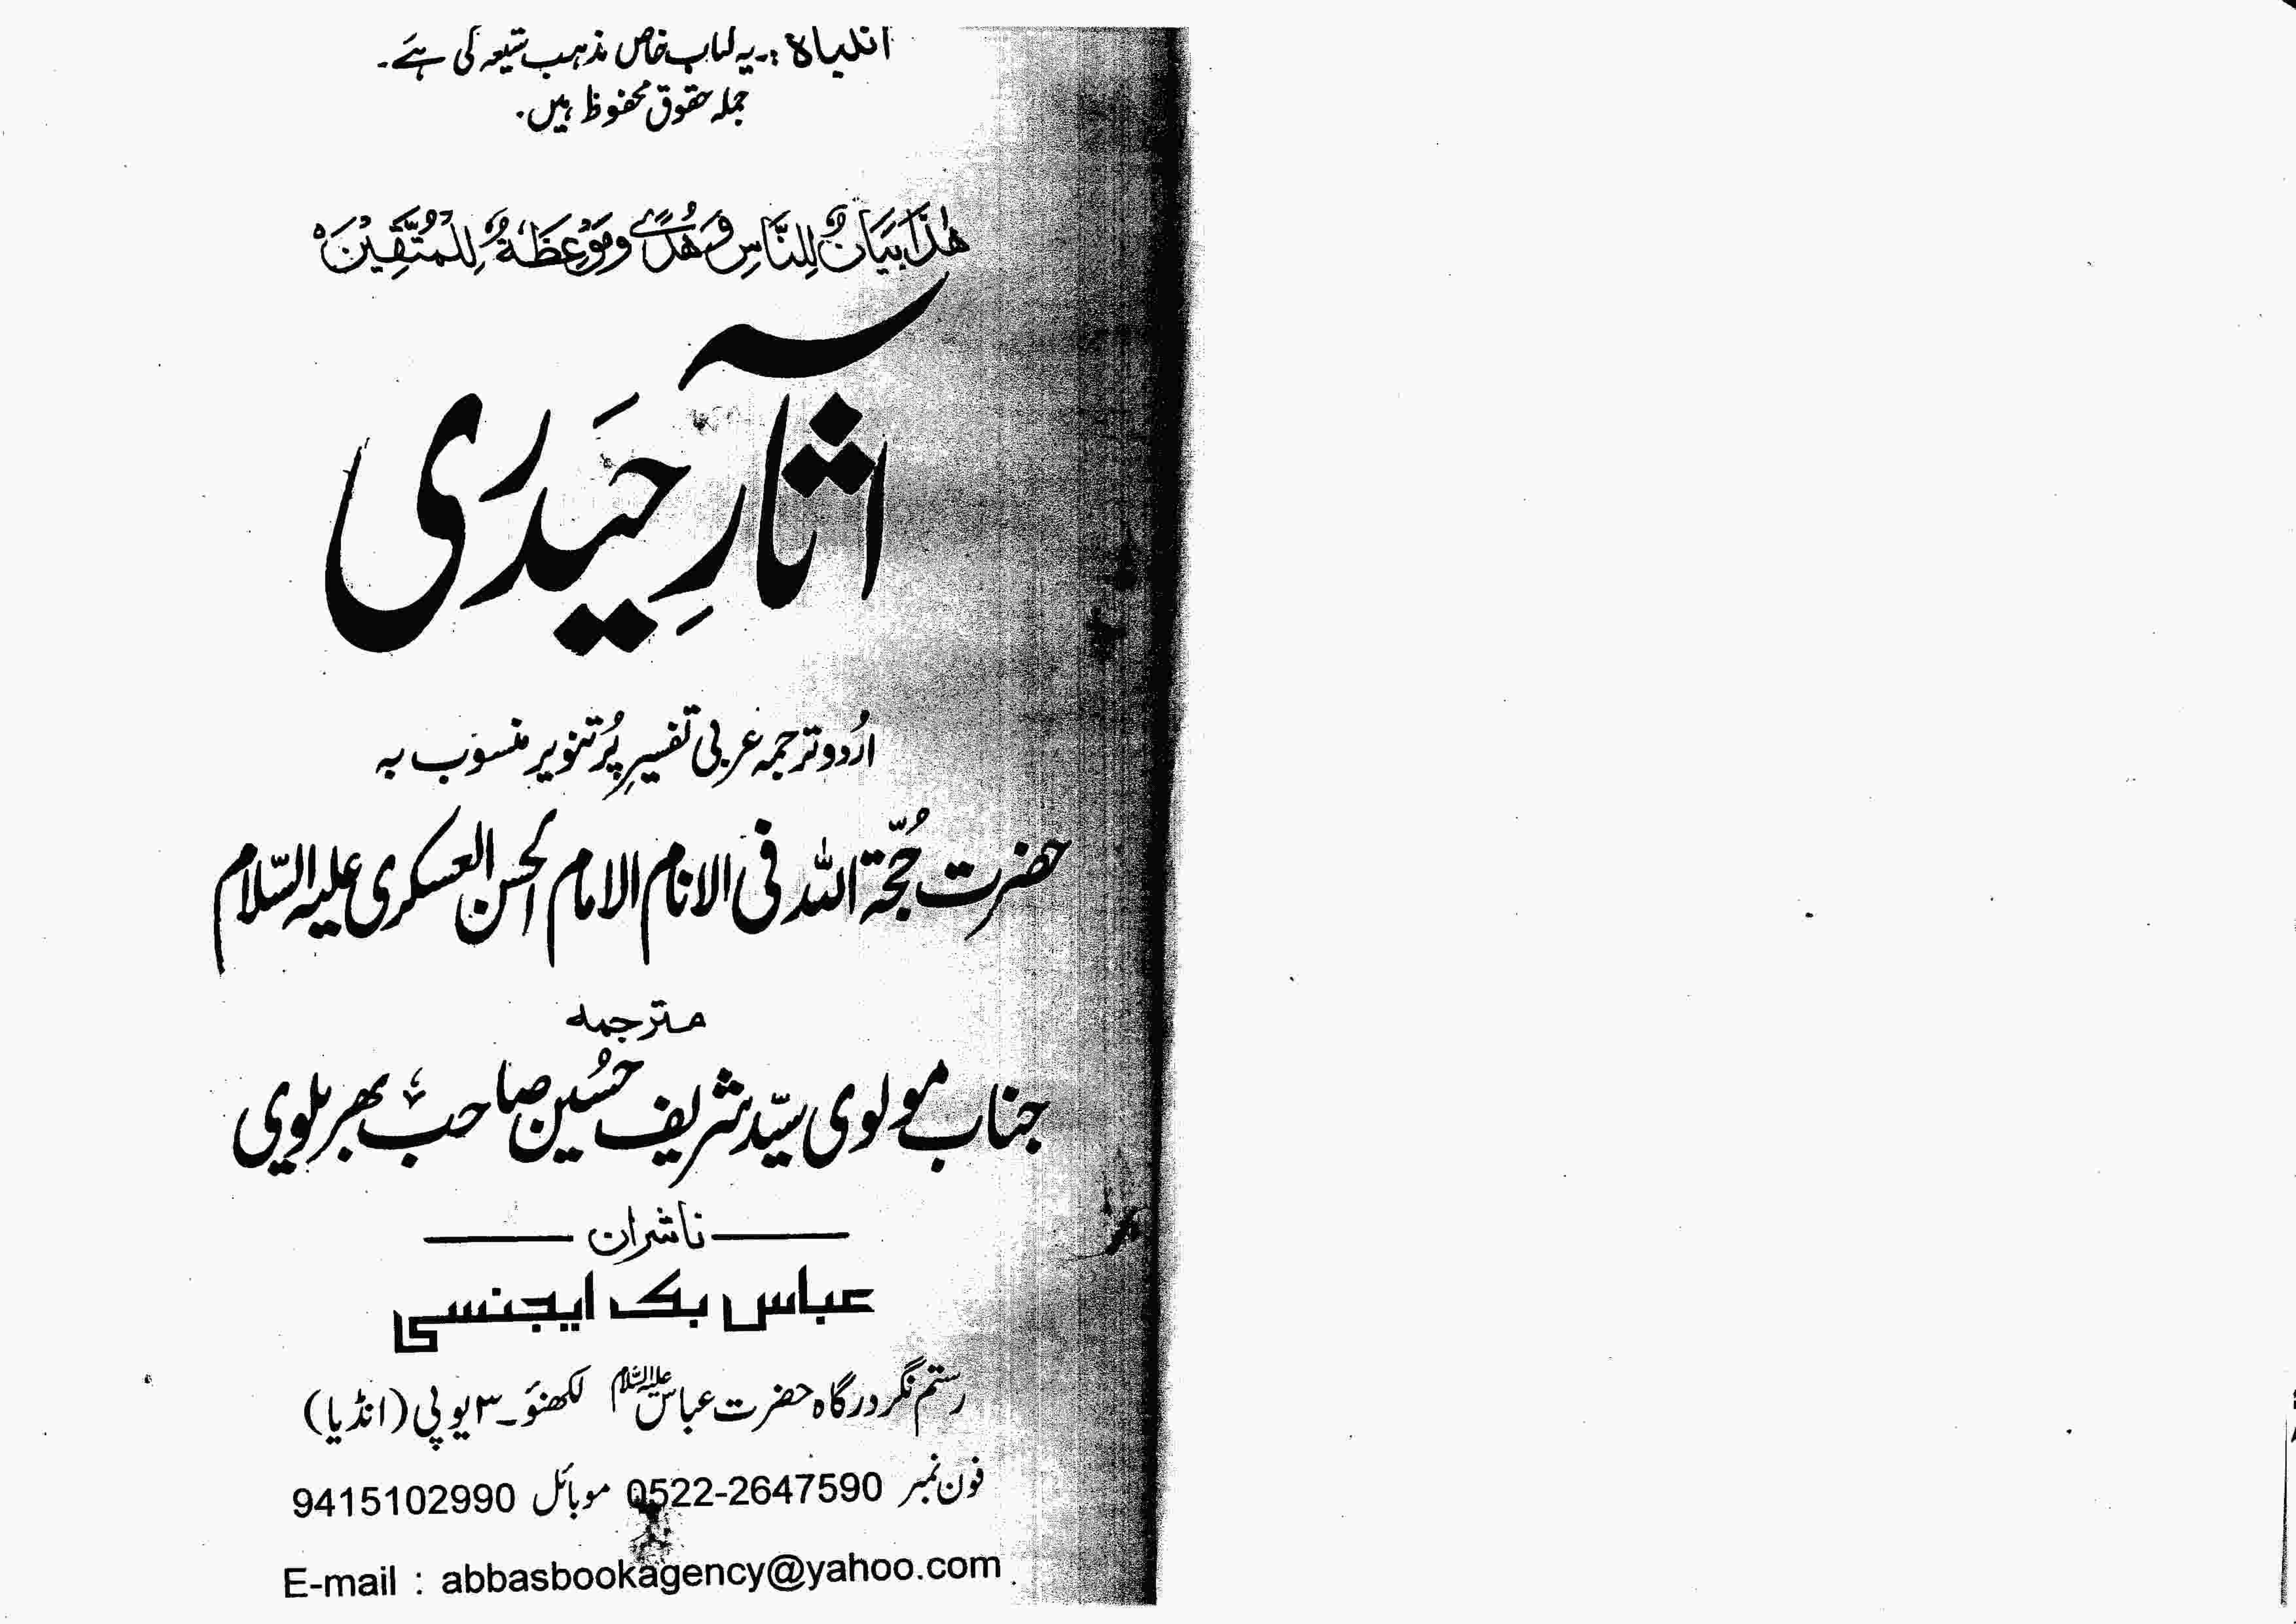 انتباہ :۔ یہ کتاب خاص مذہب شیعہ کی ہے۔
جملہ حقوق محفوظ ہیں۔
ھٰذَا بَیَانٌ لِّلنَّاسِ وَھُدًی وَّمَوْعِظَةٌ لِّلْمُتَّقِیْنَ۝
آثارِ حَیدری
اُردو ترجمہ عربی تفسیرِ پُرتنویر منسوب بہ
حضرت حُجّۃ اللہ فی الانام الامام الحسن العسکری علیہ السّلام
مترجمہ
جناب مولوی سیّد شریف حُسین صاحب بھریلوی
ناشران
عباس بک ایجنسی
رستم نگر درگاہ حضرت عباس علیہ السّلام لکھنؤ۔۳ یوپی (انڈیا)
فون نمبر 0522-2647590 موبائل 9415102990
E-mail : abbasbookagency@yahoo.com